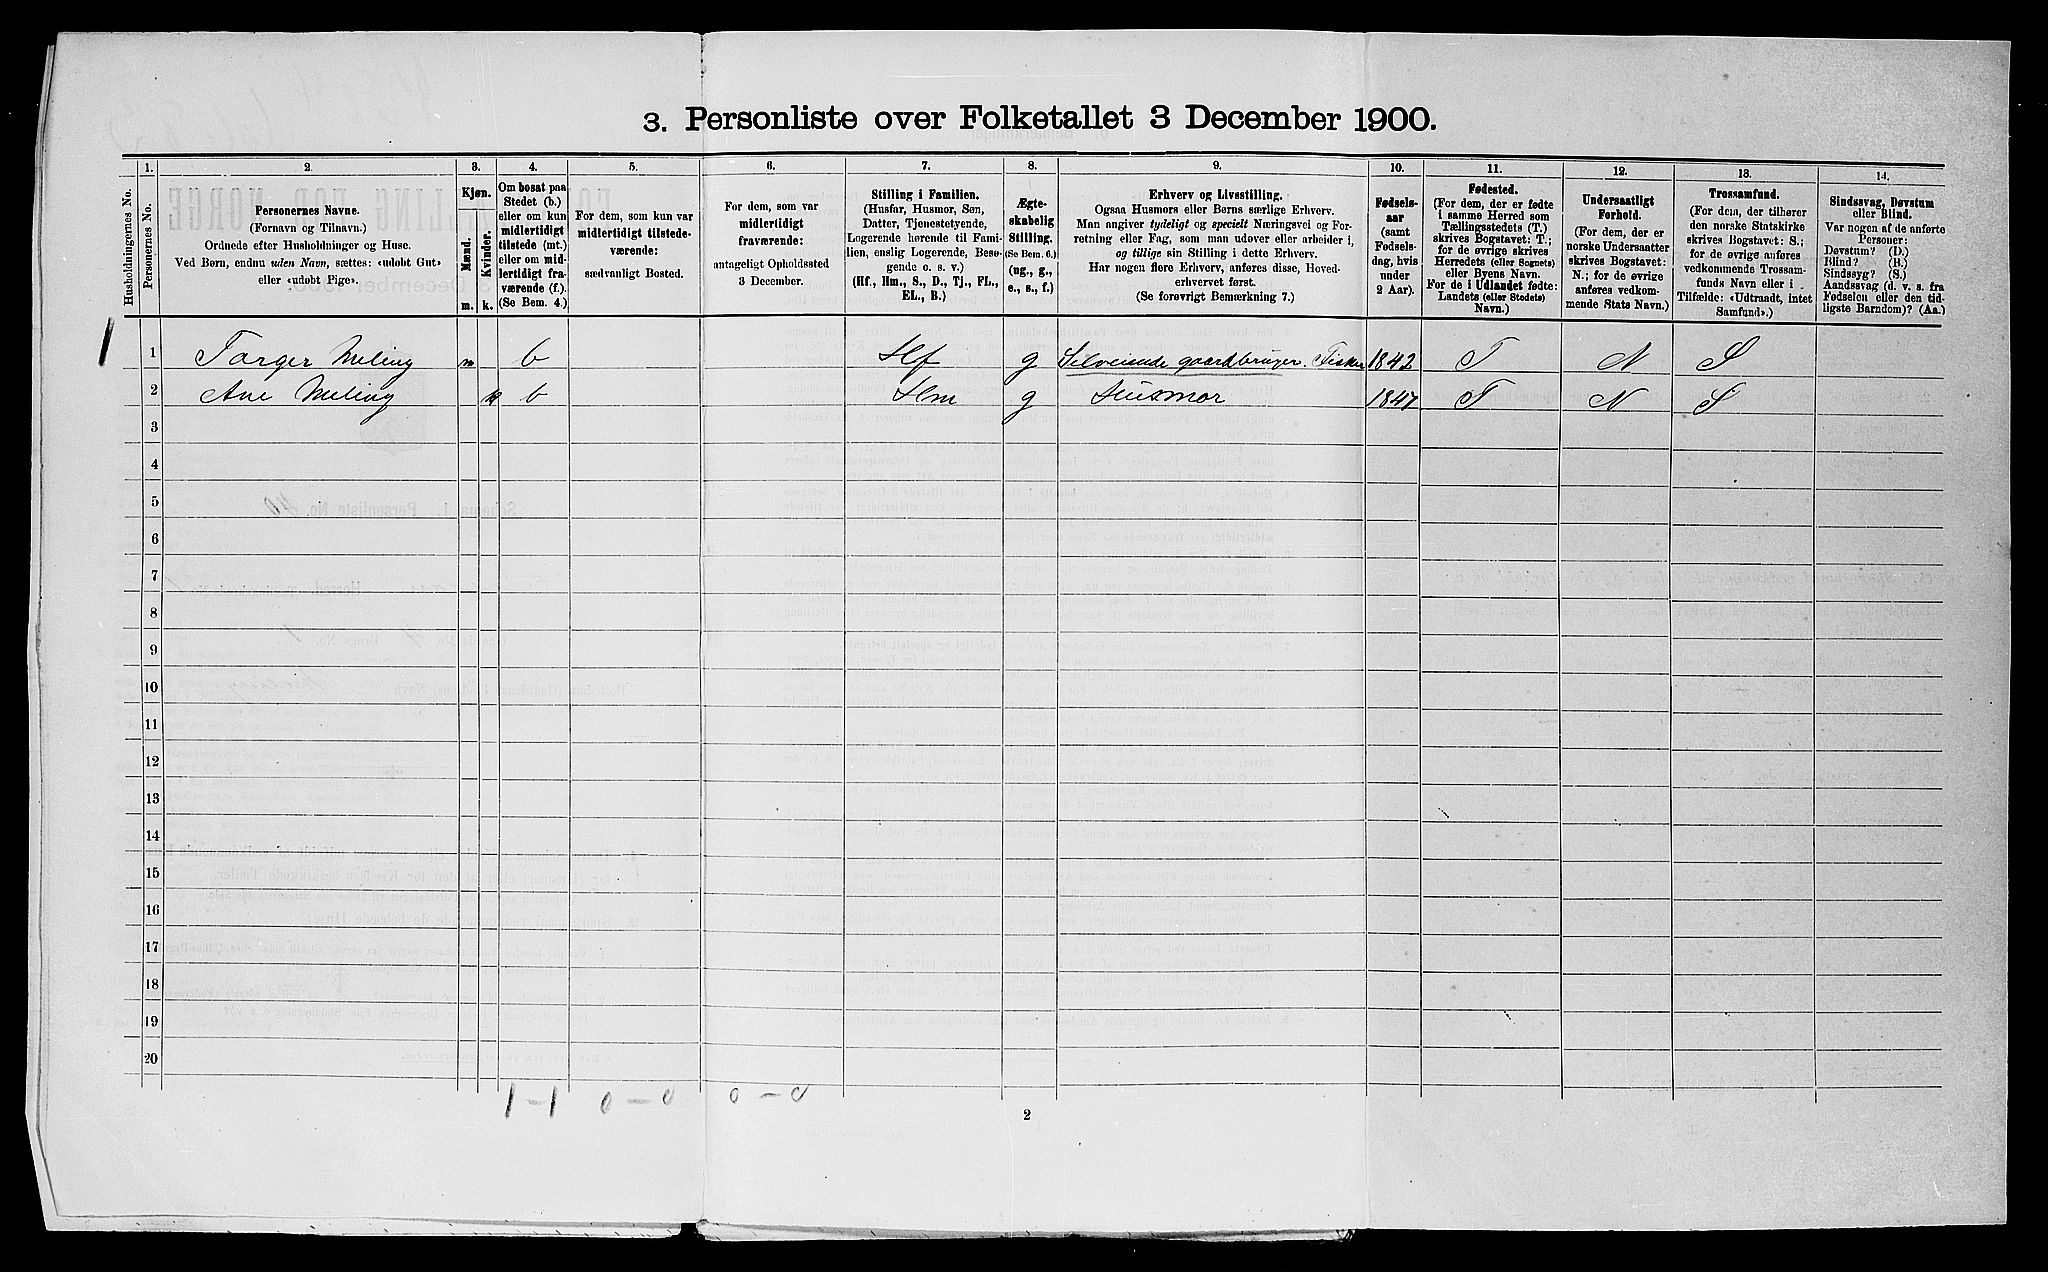 3. Personliste over Folketallet 3 December 1900.
1. 2. 3. 4. 5. 6. 7. 8. 9. 10. 11. 12. 13. 14.
Husholdningernes No.
Personernes No.
Personernes Navne.
(Fornavn og Tilnavn.)
Ordnede efter Husholdninger og Huse.
Ved Børn, endnu uden Navn, sættes: «udøbt Gut»
eller «udøbt Pige».
Kjøn.
Mænd.
Kvinder.
m. k.
Om bosat paa
Stedet (b.)
eller om kun
midlertidigt
tilstede (mt.)
eller om mid-
lertidigt fra-
værende (f.)
(Se Bem. 4.)
For dem, som kun var
midlertidigt tilstede-
værende:
sædvanligt Bosted.
For dem, som var
midlertidigt
fraværende:
antageligt Opholdssted
3 December.
Stilling i Familien.
(Husfar, Husmor, Søn,
Datter, Tjenestetyende,
Logerende hørende til Fami-
lien, enslig Logerende, Besø-
gende o. s. v.)
(Hf., Hm., S., D., Tj., FL.,
EL., B.)
Ægte-
skabelig
Stilling.
(Se Bem. 6.)
(ug., g.,
e., s., f.)
Erhverv og Livsstilling.
Ogsaa Husmors eller Børns særlige Erhverv.
Man angiver tydeligt og specielt Næringsvei og For-
retning eller Fag, som man udøver eller arbeider i,
og tillige sin Stilling i dette Erhverv.
Har nogen flere Erhverv, anføres disse, Hoved-
erhvervet først.
(Se forøvrigt Bemærkning 7.)
Fødsels-
aar
(samt
Fødsels-
dag, hvis
under
2 Aar).
Fødested.
(For dem, der er fødte
i samme Herred som
Tællingsstedets (T.)
skrives Bogstavet: T.;
for de øvrige skrives
Herredets (eller Sognets)
eller Byens Navn.
For de i Udlandet fødte:
Landets (eller Stedets)
Navn.)
Undersaatligt
Forhold.
(For dem, der er
norske Undersaatter
skrives Bogstavet:
N.; for de øvrige
anføres vedkom-
mende Stats Navn.)
Trossamfund.
(For dem, der tilhører
den norske Statskirke
skrives Bogstavet: S.;
for de øvrige anføres
vedkommende Trossam-
funds Navn eller i
Tilfælde: «Udtraadt, intet
Samfund».)
Sindssvag, Døvstum
eller Blind.
Var nogen af de anførte
Personer:
Døvstum? (D.)
Blind? (B.)
Sindssyg? (S.)
Aandssvag (d. v. s. fra
Fødselen eller den tid-
ligste Barndom)? (Aa.)
1 1 Torger Meling m b Hf g Selveiende gaardbruger. Fisker 1842 T N S
2 Ane Meling k b Hm g Husmor 1847 T N S
3
4
5
6
7
8
9
10
11
12
13
14
15
16
17
18
19
20
1 - 1 0 - 0 0 - 0
2